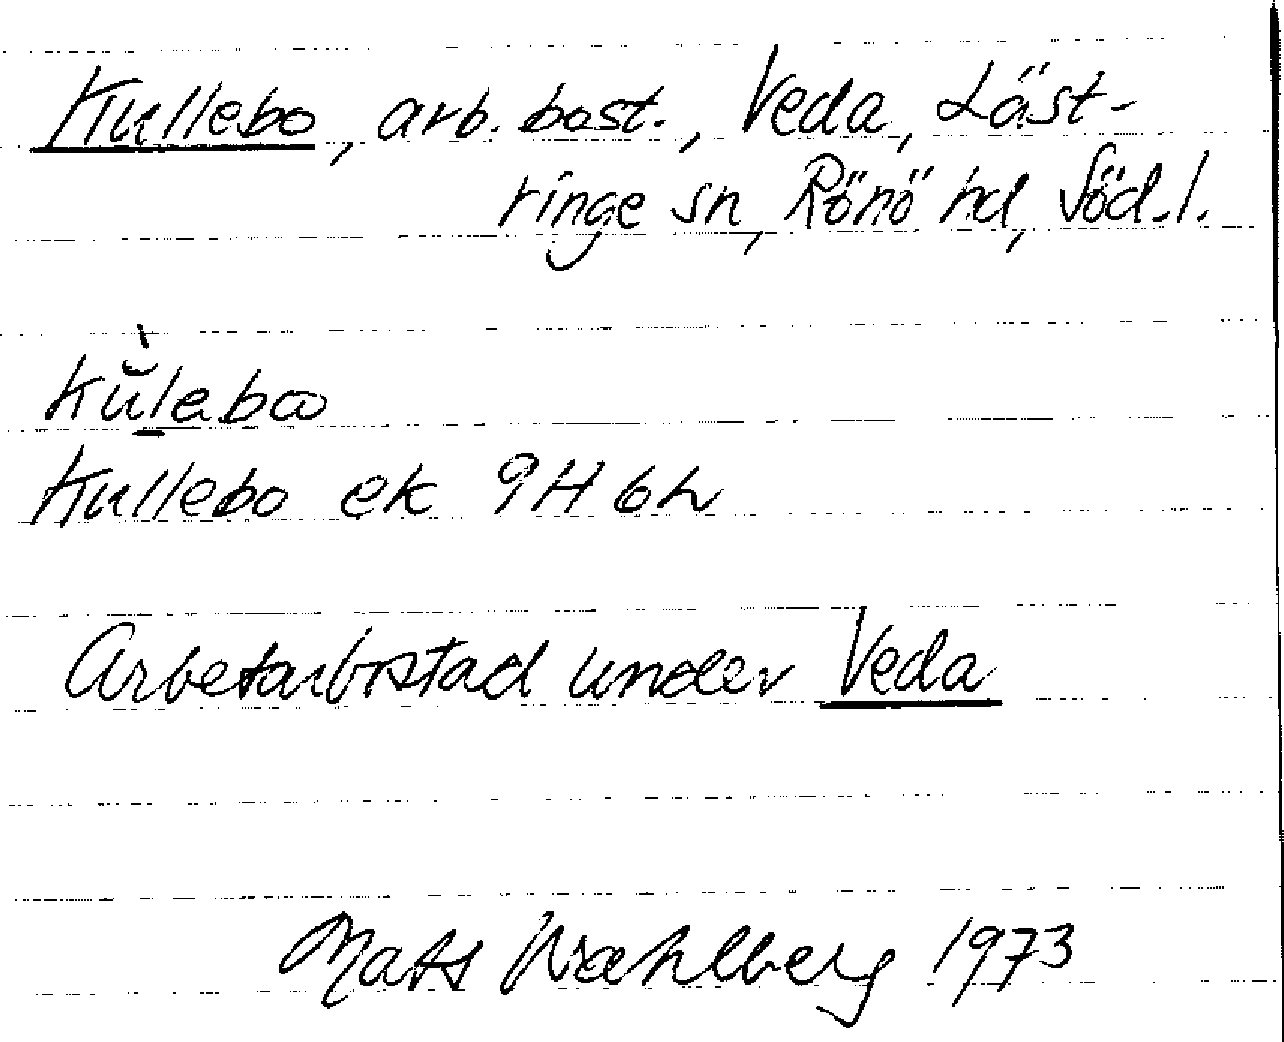 Kullebo, arb. bost., Veda, Läst-
ringe sn, Rönö hd, Söd.l.
kŭ̀lebω
Kullebo ek 9H 6h
Arbetarbostad under Veda
Mats Wahlberg 1973